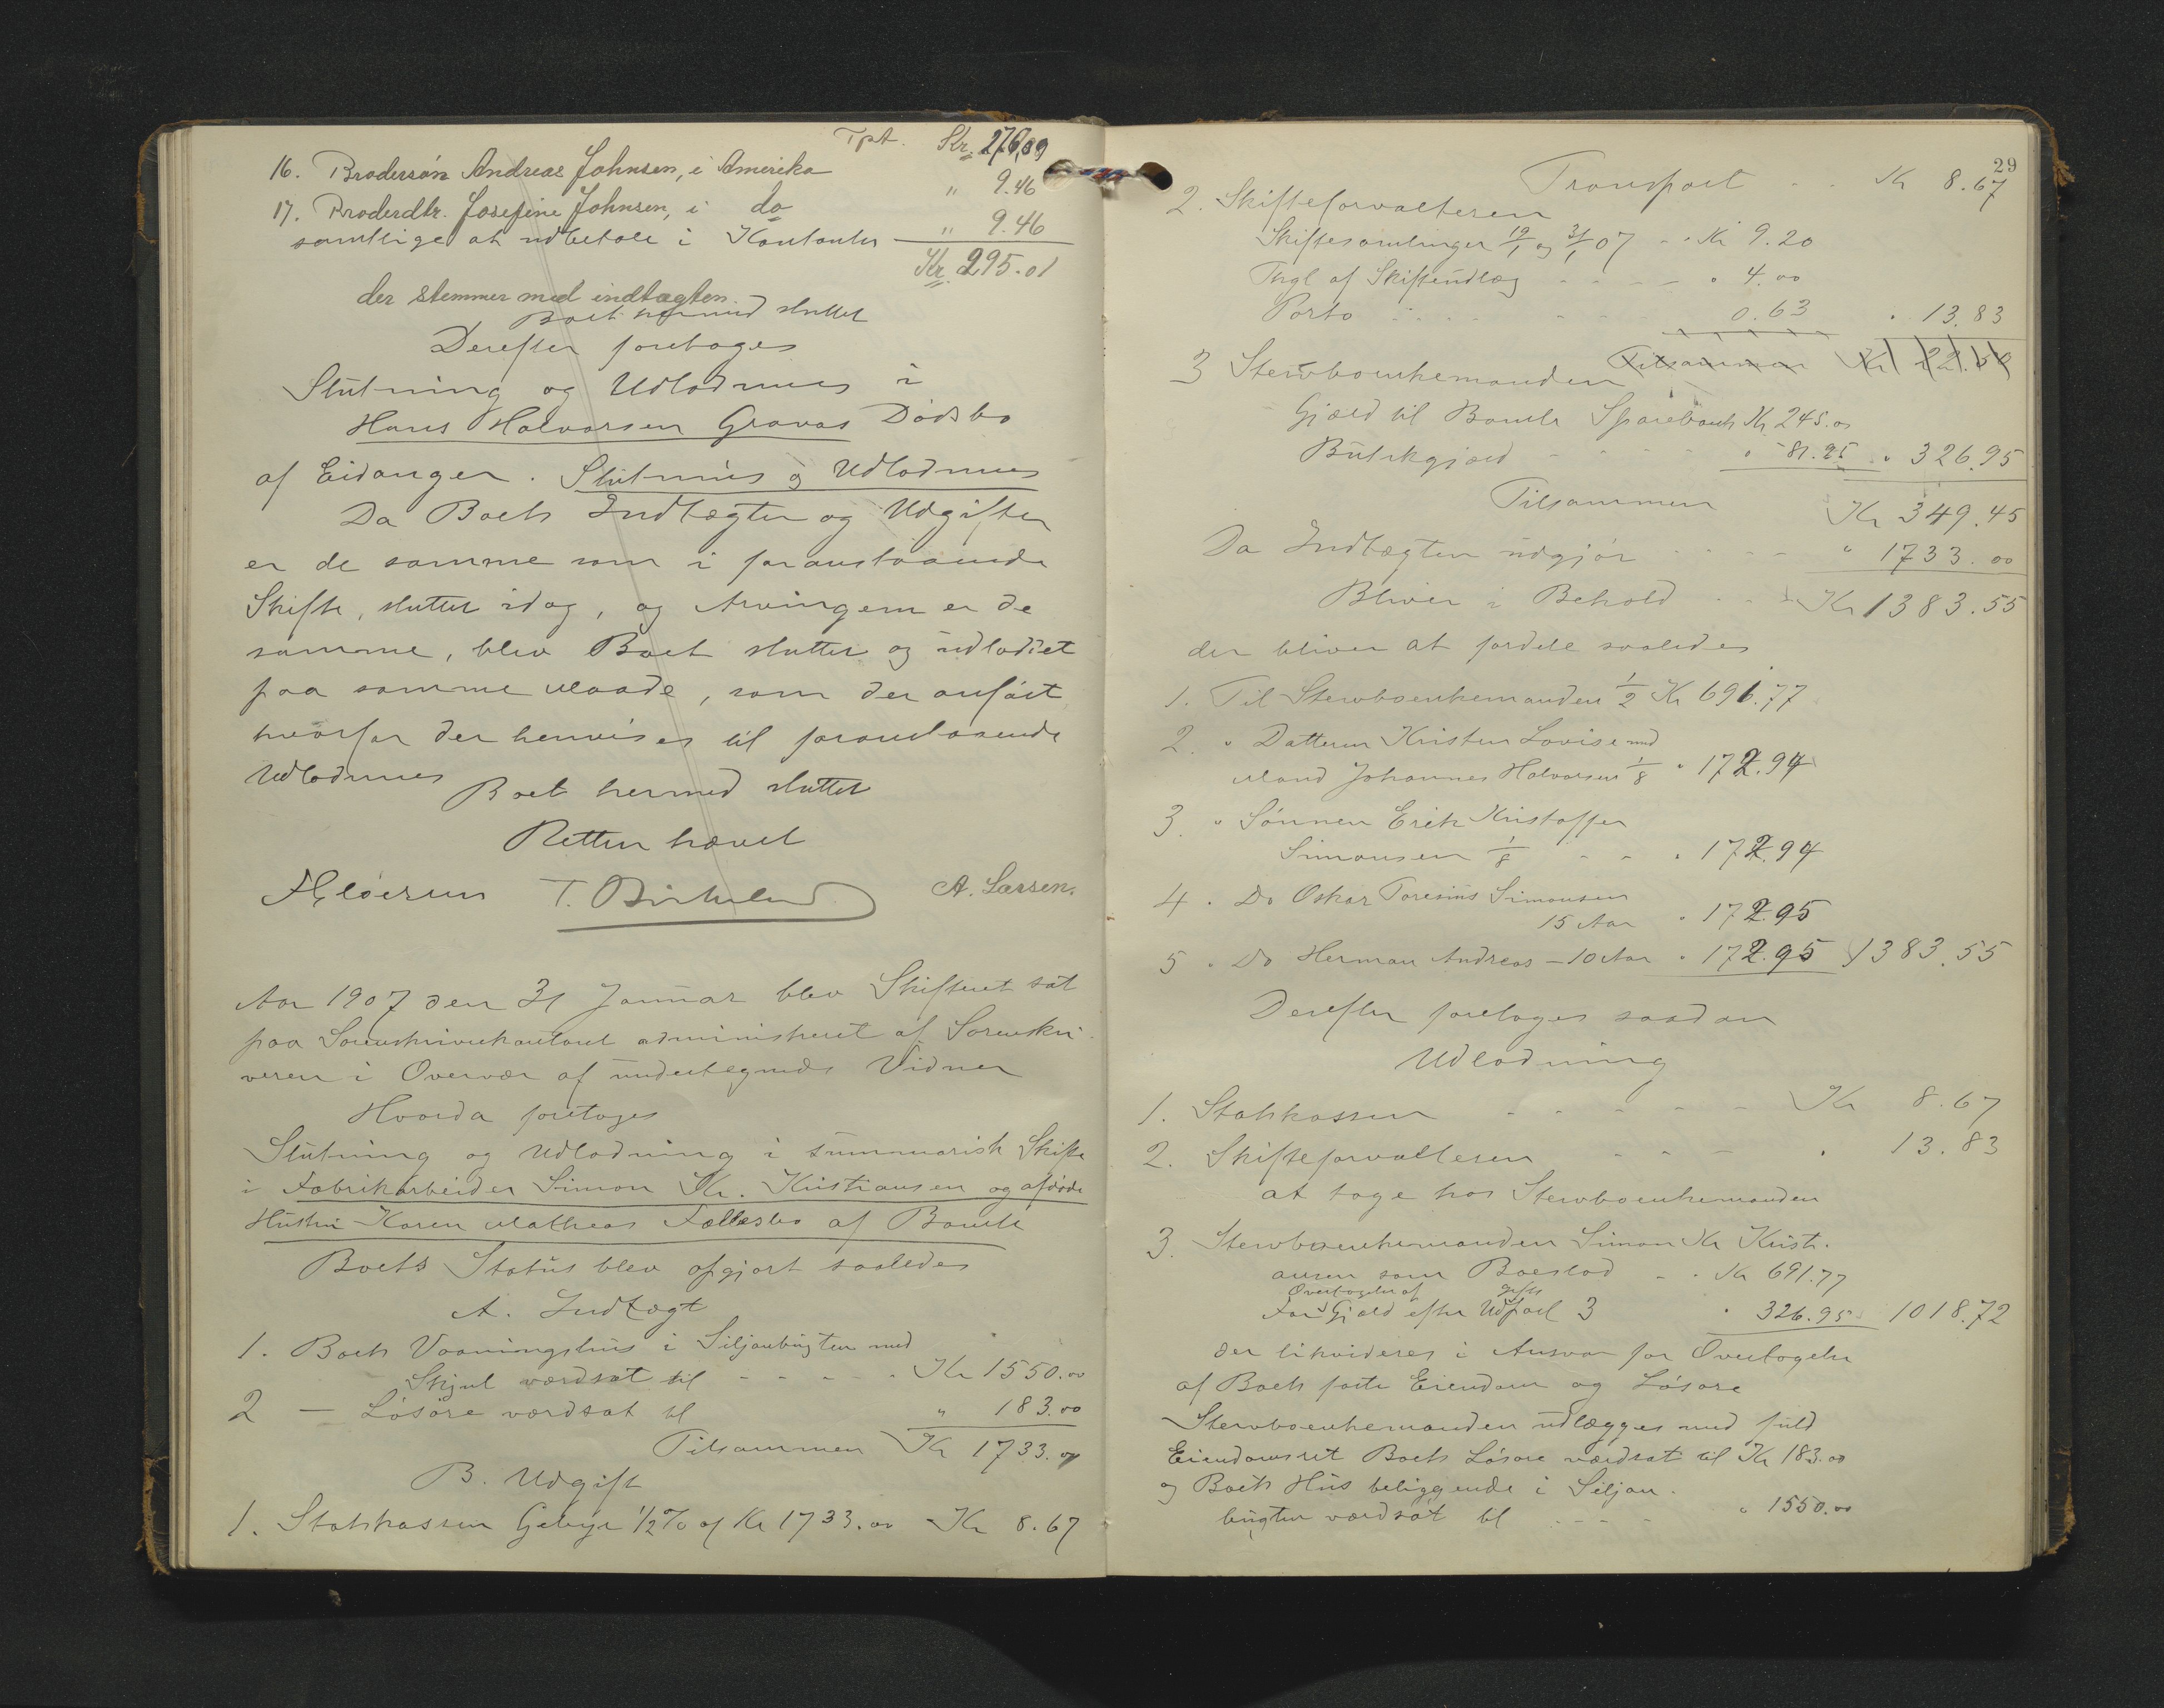 Tpt. Kr. 276,09
16. Brodersøn Andreas Johnsen, i Amerika " 9.46
17. Broderdtr. Josefine Johnsen, i do " 9.46
samtlige at udbetale i Kontanter
Kr. 295.01
der stemmer med indtægten.
Boet hermed sluttet
Derefter foretoges
Slutning og Udlodning i
Hans Halvorsen Gravas Dødsbo
af Eidanger. Slutning og Udlodning
Da Boets Indtægter og Udgifter
er de samme som i foranstaaende
Skifte, sluttet idag, og Arvingern er de
samme, blev Boet sluttet og udloddet
paa samme Maade, som der anført
hvorfor der henvises til foranstaaende
Udlodning
Boet hermed sluttet
Retten hævet
T. Birkeland A. Larsen.
Aar 1907 den 31 Januar blev Skifteret sat
paa Sorenskriverkontoret administreret af Sorenskri-
veren i Overvær af undertegnede Vidner
Hvorda foretoges
Slutning og Udlodning i summarisk Skifte
i Fabrikarbeider Simon Kr. Kristiansen og afdøde
Hustru Karen Matheas Fællesbo af Bamle
Boets Status blev opgjort saaledes
A. Indtægt
1. Boets Vaaningshus i Siljanbugten med
Skjul værdsat til - - - - - Kr 1550.00
2 — Løsøre værdsat til " 183.00
Tilsammen Kr 1733.00
B. Udgift
1. Statskassen Gebyr 1/2% af Kr 1733.00 Kr 8.67
29
Transport - - Kr 8.67
2. Skifteforvalteren
Skiftesamlinger 19/1 og 31/1 07 - " Kr 9.20
Tngl af Skifteudlæg - - - - " 4.00
Porto - - - - 0.63 " 13.83
Tilsammen Kr 22.50
3 Stervboenkemanden
Gjæld til Bamle Sparebank Kr 245.00
Butikgjæld - - - - " 81.95 " 326.95
Tilsammen Kr 349.45
Da Indtægten udgjør - - - - " 1733.00
Bliver i Behold - - - Kr 1383.55
der bliver at fordele saaledes
1. Til Stervboenkemanden 1/2 Kr 691.77
2. " Datteren Kristen Lovise med
Mand Johannes Halvorsen 1/8 " 172.94
3. " Sønnen Erik Kristoffer
Simonsen 1/8 - - " 172.94
4. Do Oskar Toresius Simonsen
15 Aar " 172.95
5 " Do Herman Andreas - 10 Aar " 172.95 1383.55
Derefter foretoges saadan
Udlodning
1. Statskassen - - - - - Kr 8.67
2. Skifteforvalteren - - - " 13.83
at tage hos Stervboenkemanden
3. Stervboenkemanden Simon Kr Kristi-
ansen som Boeslod - - Kr 691.77
Overtagelse af gifts
For Gjæld efter Udpost 3 " 326.95 1018.72
der likvideres i Ansvar for Overtagelse
af Boets faste Eiendom og Løsøre
Stervboenkemanden udlægges med fuld
Eiendomsret Boets Løsøre værdsat til Kr 183.00
og Boets Hus beliggende i Siljan-
bugten værdsat til - - - - " 1550.00